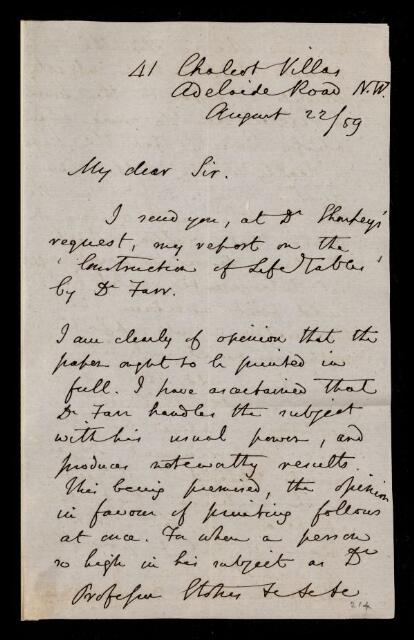 41 Chalcot Villas
Adelaide Road N.W.
August 22/59
My dear Sir.
I send you, at Dr Sharpey's
request, my report on the
'Construction of Life Tables'
by Dr Farr.
I am clearly of opinion that the
paper ought to be printed in
full. I have ascertained that
Dr Farr handles the subject
with his usual power, and
produces noteworthy results.
This being premised, the opinion
in favour of printing follows
at once. For when a person
so high in his subject as Dr
Professor Stokes &c &c &c
214